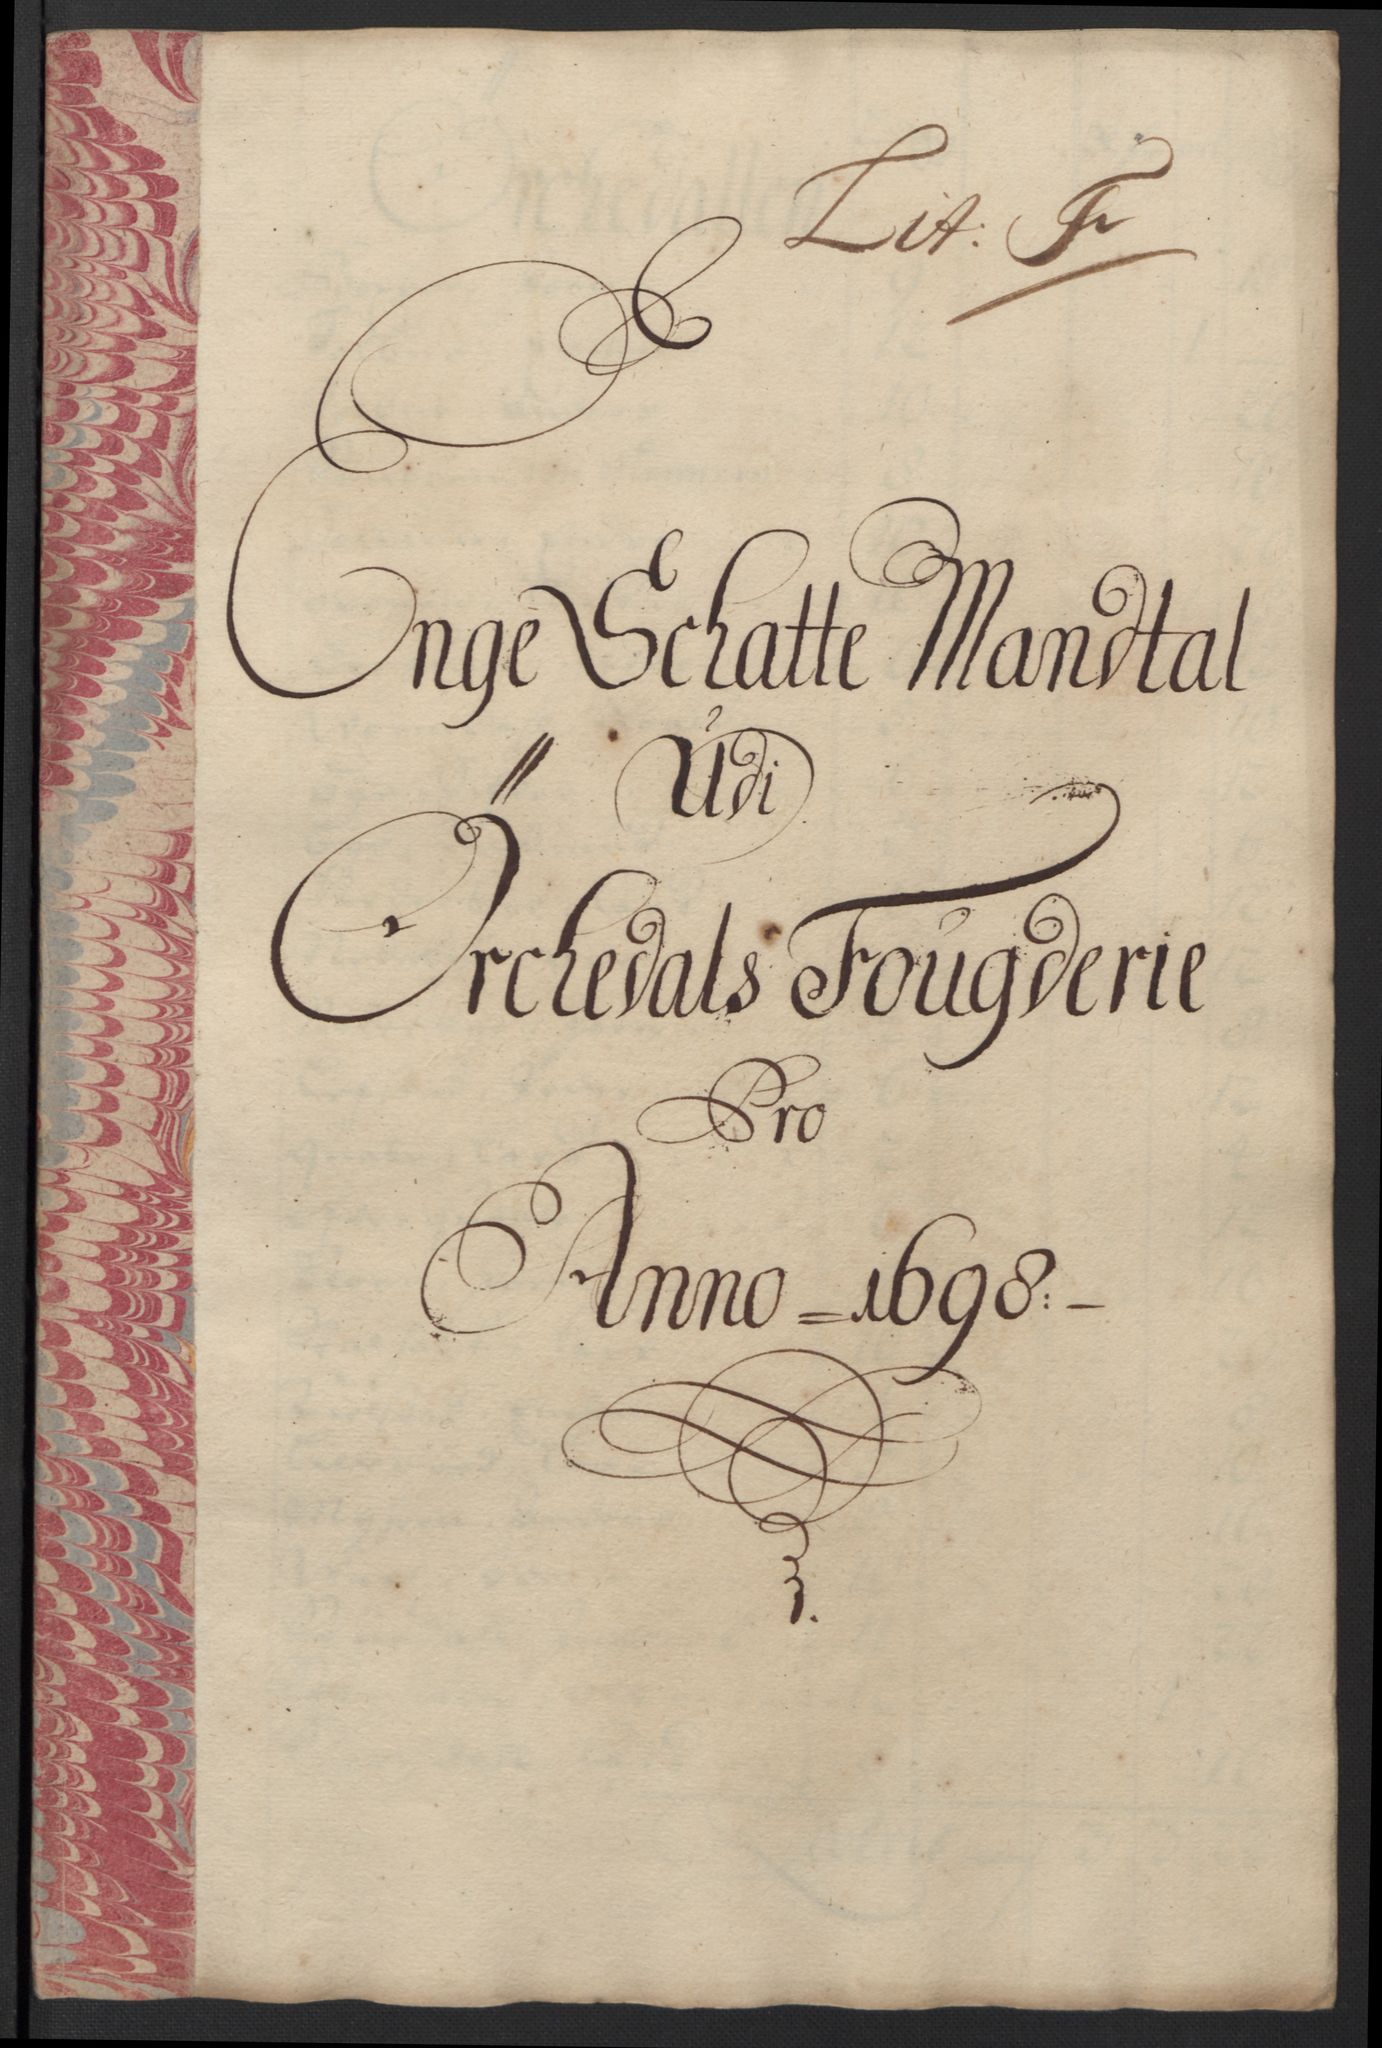 Lit: F
Enge Schatte Mandtal
Udi
Örchedals Fougderie
Pro
Anno = 1698: –